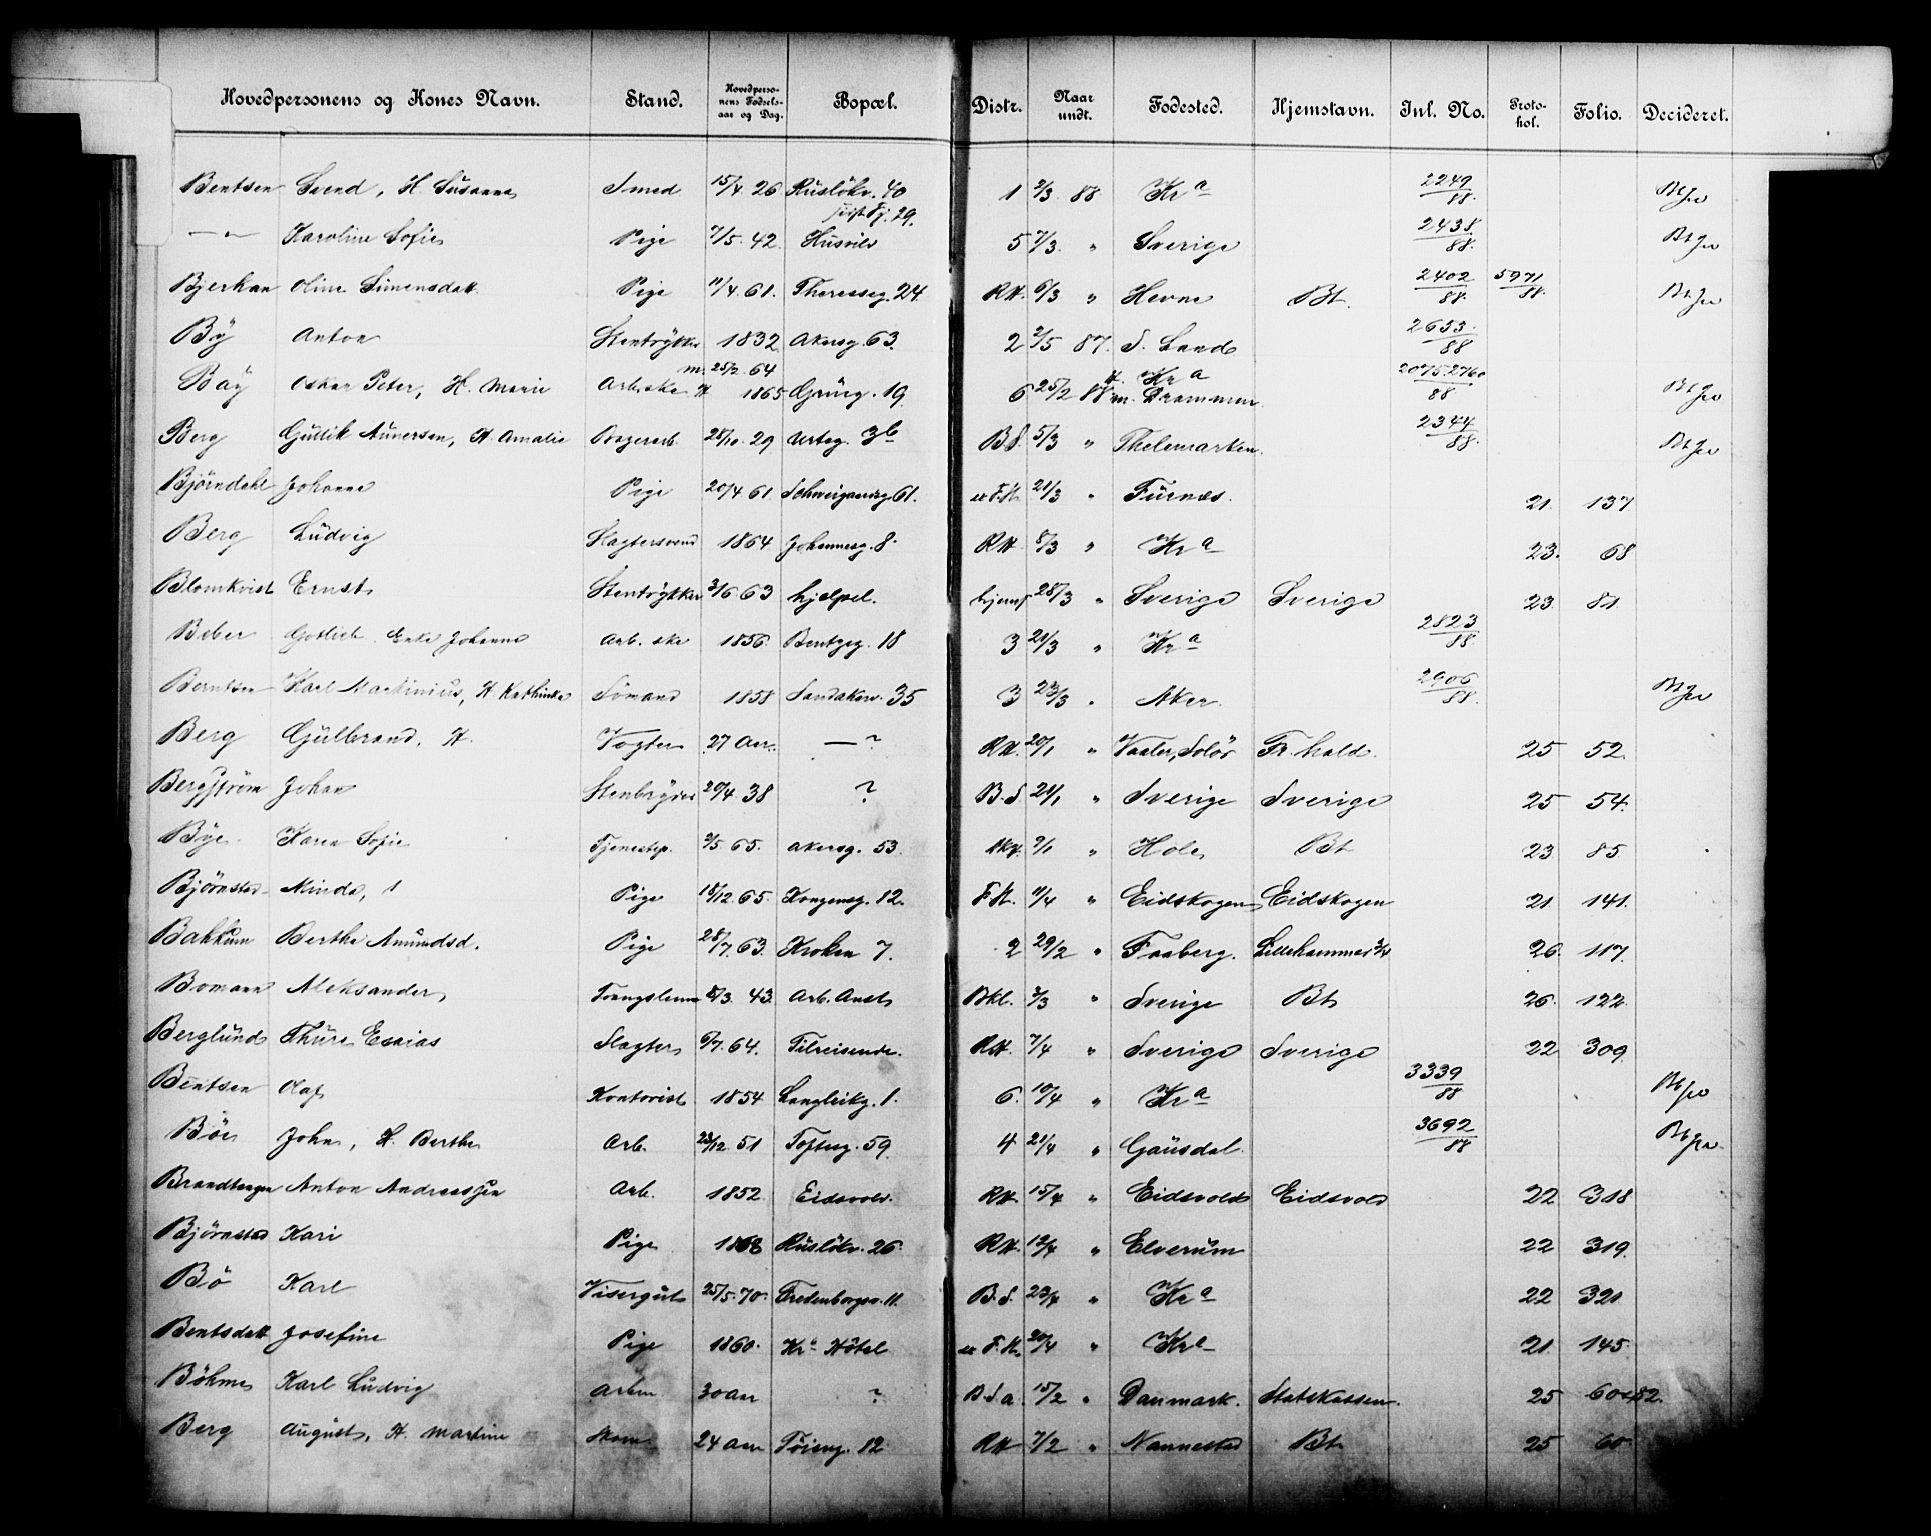 Hovedpersonens og Kones Navn. Stand. Hovedpersonens Fødselsaar og Dag. Bopæl. Distr. Naar undt. Fødested. Hjemstavn. Inl. No. Protokol. Folio. Decideret.
Bentsen Svend, H. Susanna Smed 15/4 26 Rusløkv. 40 1 2/3 88 Kra 2249/88.
— " — Karoline Sofie Pige 7/5. 42. Husvild 29. 5 7/3. " Sverige 2438/88.
Bjerkan Oline Simensdatt. Pige 11/4. 61. Theresesg. 24. RH. 6/3 " Hevne Bt. 2402/88. 5971/88.
By Anton Stentrykker 1832 Akersg. 63. 2 2/5 87. S. Land 2653./88
Bay Oskar Peter, H. Marie Arb. ske m. 25/2. 64 H 1865 Grüng. 19. 6 25/2 88 H. Kra m. Drammen. 2075.2760/88
Berg Gullik Aunersen, H. Amalie Bagerarb. 28/10. 29 Urteg. 3b B.S. 5/3 " Thelemarken. 2344/88.
Bjørndahl Johanne Pige 20/4 61 Schweigaardsg. 61. F.K. 21/3 " Furnæs. 21. 137
Berg Ludvig Slagtersvend 1864 Johannesg. 8. RH. 8/3 " Kra 23. 68
Blomkvist Ernst Stentrykker 3/6 63 hjelpel. hjemf 28/3 " Sverige Sverige 23. 81
Beber Gotlieb Enke Johanne Arb. ske 1856. Bentzeg. 18 3 21/3 " Kra 2823/88.
Berntsen Karl Martinius, H. Kathinka Sømand 1858 Sandakerv. 35 3 23/3 " Aker. 2906/88.
Berg Gulbrand, H. Vogter 27 Aar. — ? RH. 20/1 " Vaaler, Solør Fr. hald. 25 52.
Bergstrøm Johan 20/4. 38 ? B.S 21/1 " Sverige Sverige 25 54.
Bye. Karen Sofie Tjenestep. 2/5. 65. Akersg. 53. 9/1 " Hole Bt 23 85.
Bjørnstad Minda, 1 Pige 18/12. 65. Kongensg. 12. F.K. 11/4 " Eidskogen Eidskogen 21. 141.
Bakkum Berthe Amundsd. Pige 28/7. 63. Kroken 7. 2 29/2 " Faaberg. Lillehammer 3/4 26. 117.
Bomann Aleksander Tvangslem 8/3. 43. Arb. Anst. Bkl. 3/3 " Sverige Bt 26. 122.
Berglund Thure Esaias Slagter 6/7. 64. Tilreisende. RH. 7/4 " Sverige Sverige 22 309.
Bentsen Olaf Kontorist 1854 Langleikg. 1. 6. 10/4 " Kra 3339/88
Böe John, H. Berthe Arb. 23/12. 51 Tofteg. 59. 4 21/4 " Gausdal. 3692/88
Brandtangen Anton Andreassen Arb. 1852. Eidsvold. RH. 15/4 " Eidsvold Eidsvold 22 318
Bjørnstad Kari Pige 1868 Rusløkv. 26. RH. 12/4 " Elverum 22 319.
Bö Karl Visergut 25/5. 70. Fredensborgv. 11. B.S. 23/4 " Kra 22 321.
Bentsdatt Josefine Pige 1860. Kra Hôtel F.K. 20/4 " Kra 21 145.
Böhme Karl Ludvig Arbm 30 Aar ? B.S.a. 15/2 " Danmark. Statskassen. 25 60
Berg August, H. Martine Skom. 24 Aar Tøieng. 12 RH. 7/2 " Nannestad Bt 25 60.